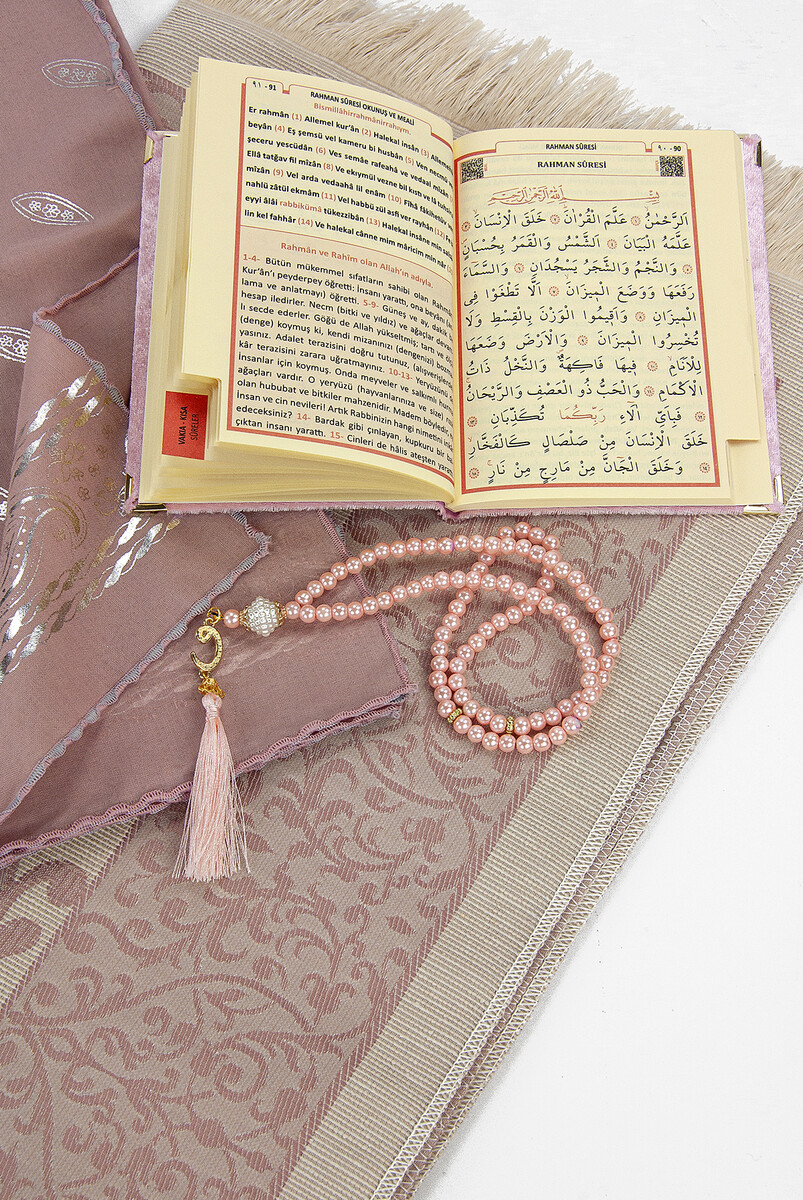 ٩١ - 91
RAHMAN SÛRESİ OKUNUŞ VE MEALİ
Bismillâhirrahmânirrahıym.
Er rahmân (1) Allemel kur'ân (2) Halekal insân (3) Allemehül
beyân (4) Eş şemsü vel kameru bi husbân (5) Ven necmü veş
şeceru yescüdân (6) Ves semâe rafeahâ ve vedaal mîzân
Ellâ tatğav fil mîzân (8) Ve ekıymül vezne bil kıstı ve lâ tuhsirul
mîzân (9) Vel arda vedaahâ lil enâm (10) Fîhâ fâkihetün
nahlü zâtül ekmâm (11) Vel habbü zül asfi ver rayhân (12)
eyyi âlâi rabbikümâ tükezzibân (13) Halekal insâne min
lin kel fahhâr (14) Ve halekal cânne mim mâricim min nâr
Rahmân ve Rahîm olan Allah'ın adıyla.
1-4- Bütün mükemmel sıfatların sahibi olan Rahmân
Kur'ân'ı peyderpey öğretti: İnsanı yarattı, ona beyânı
lama ve anlatmayı) öğretti. 5-9- Güneş ve ay, dakik bir
hesap iledirler. Necm (bitki ve yıldız) ve ağaçlar devamlı
lı secde ederler. Göğü de Allah yükseltmiş; tam ve
(denge) koymuş ki, kendi mizanınızı (dengenizi)
yasınız. Adalet terazisini doğru tutunuz, (alışverişlerde)
kâr terazisini zarara uğratmayınız. 10-13- Yeryüzünü
İnsanlar için koymuş. Onda meyveler ve salkımlı
ağaçları vardır. O yeryüzü (hayvanlarınıza ve size)
olan hububat ve bitkiler mahzenidir. Madem böyledir,
İnsan ve cin nevileri! Artık Rabbinizin hangi nimetini
edeceksiniz? 14- Bardak gibi çınlayan, kupkuru bir
çıktan insanı yarattı. 15- Cinleri de hâlis ateşten
VAKIA - KISA
SÛRELER
RAHMAN SÛRESİ
٩٠ - 90
RAHMAN SÛRESİ
بِسْمِ اللّٰهِ الرَّحْمٰنِ الرَّحٖيمِ
اَلرَّحْمٰنُ عَلَّمَ الْقُرْاٰنَ خَلَقَ الْاِنْسَانَ
عَلَّمَهُ الْبَيَانَ اَلشَّمْسُ وَالْقَمَرُ بِحُسْبَانٍ
وَالنَّجْمُ وَالشَّجَرُ يَسْجُدَانِ وَالسَّمَاءَ
رَفَعَهَا وَوَضَعَ الْمٖيزَانَ اَلَّا تَطْغَوْا فِى
الْمٖيزَانِ وَاَقٖيمُوا الْوَزْنَ بِالْقِسْطِ وَلَا
تُخْسِرُوا الْمٖيزَانَ وَالْاَرْضَ وَضَعَهَا
لِلْاَنَامِ فٖيهَا فَاكِهَةٌ وَالنَّخْلُ ذَاتُ
الْاَكْمَامِ وَالْحَبُّ ذُو الْعَصْفِ وَالرَّيْحَانُ
فَبِاَىِّ اٰلَاءِ رَبِّكُمَا تُكَذِّبَانِ
خَلَقَ الْاِنْسَانَ مِنْ صَلْصَالٍ كَالْفَخَّارِ
وَخَلَقَ الْجَانَّ مِنْ مَارِجٍ مِنْ نَارٍ